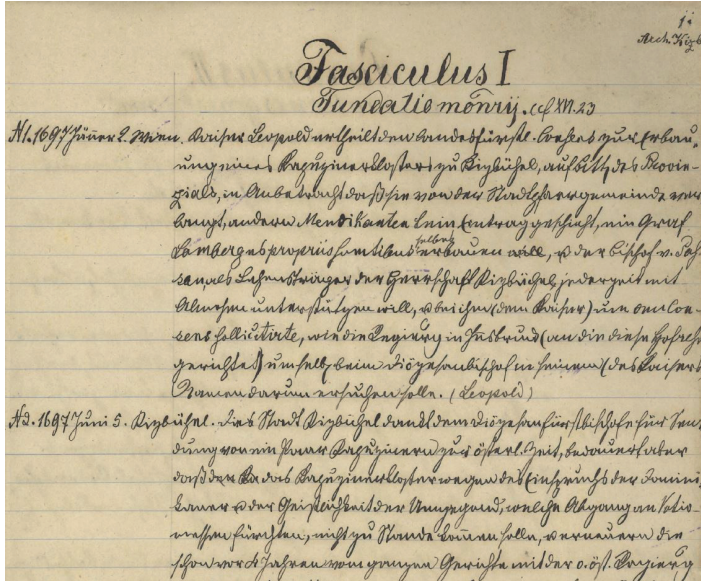 1.
Arch. Kizb
Fasciculus I
Fundatio mönrij. cf XVI. 23
N1. 1697 Jänner 2. Wien. Kaiser Leopold ertheilt den landesfürstl. Consens zur Erbau-
ung eines Kapuzinerklosters zu Kizbühel, auf Bitte des Provin-
zials, in Anbetracht daß sie von der Stadtpfarrgemeinde ver-
langt, andern Mendikanten kein Eintrag geschieht, ein Graf
Lamberg es propriis sumtibus selbes erbauen will, u der Bischof v.
als Lehensträger der Herrschaft Kizbühel jederzeit mit
Almosen unterstützen will, u bei ihm (dem Kaiser) um den Con-
sens sollicitirte, wie die Regierg in Insbruck (an die diese Hofsache
gerichtet) um selb beim Diözesanbischof in seinem (des Kaisers
Namen darum ersuchen solle. (Leopold)
N2. 1697 Juni 5. Kizbühel. Die Stadt Kizbühel dankt dem Diözesanfürstbischofe für Sen-
dung von ein Paar Kapuzinern zur österl. Zeit, bedauert aber
daß das Kapuzinerkloster wegen des Einspruchs der Domini-
kaner u der Geistlichkeit der Umgegend, welche Abgang an Votiv-
messen fürchten, nicht zu Stande kommen solle, u erneuern die
schon vor 4 Jahren vom ganzen Gerichte mit der o. öst. Regierg